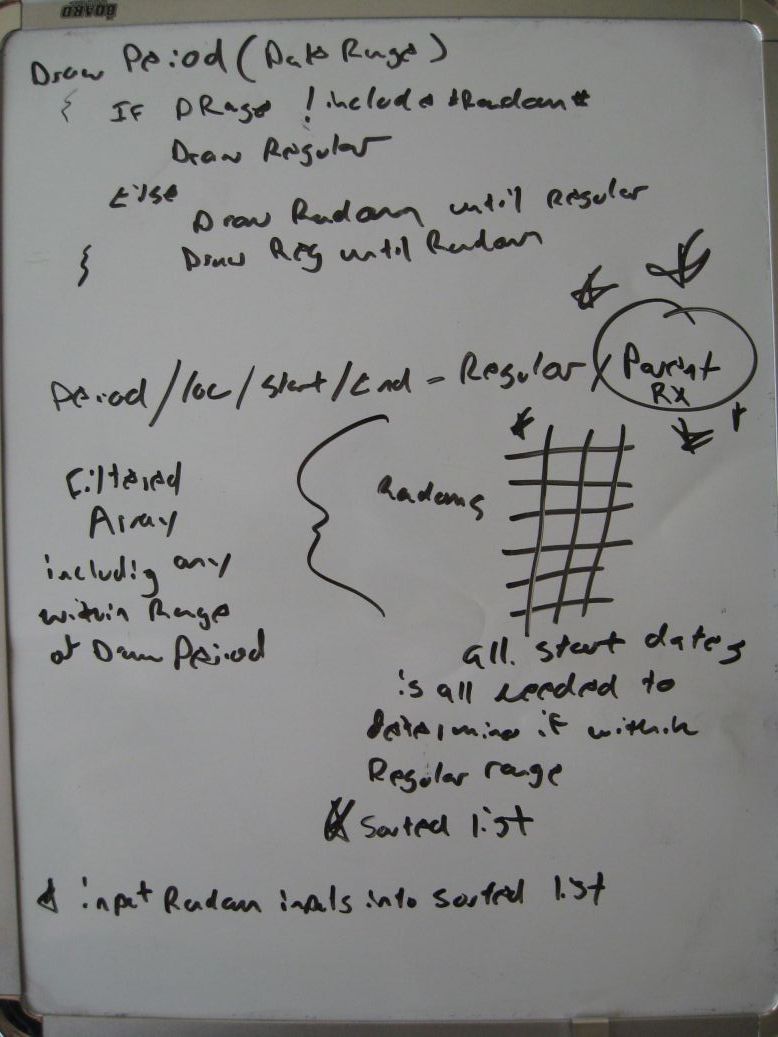 BOARD
Draw Period (Date Range)
{ IF DRage ! includes *Radom*
Draw Regular
Else
Draw Radom until regular
} Draw Reg until Radom
Period/loc/start/End = Regular / Parent
RX
Filtered
Array
includig any
within Range
at Draw Period
Radoms
all start dates
is all needed to
determine if within
Regular range
Sorted list
input Radom inputs into sorted list